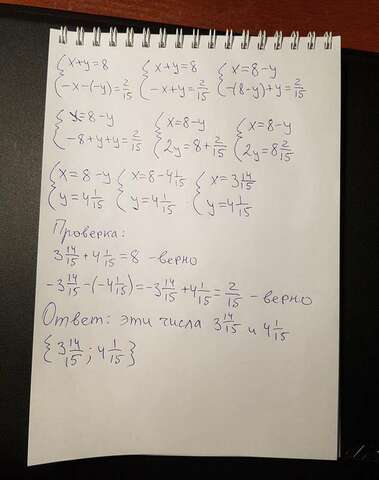 {x+y=8 {x+y=8 {x=8-y
{-x-(-y)=2/15 {-x+y=2/15 {-(8-y)+y=2/15
{x=8-y {x=8-y {x=8-y
{-8+y+y=2/15 {2y=8+2/15 {2y=8 2/15
{x=8-y {x=8-4 1/15 {x=3 14/15
{y=4 1/15 {y=4 1/15 {y=4 1/15
Проверка:
3 14/15+4 1/15=8 -верно
-3 14/15-(-4 1/15)=-3 14/15+4 1/15=2/15 - верно
Ответ: эти числа 3 14/15 и 4 1/15
{3 14/15; 4 1/15}